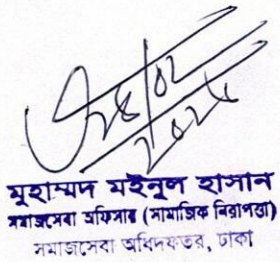 মুহাম্মদ মইনুল হাসান
সমাজসেবা অফিসার (সামাজিক নিরাপত্তা)
সমাজসেবা অধিদফতর, ঢাকা